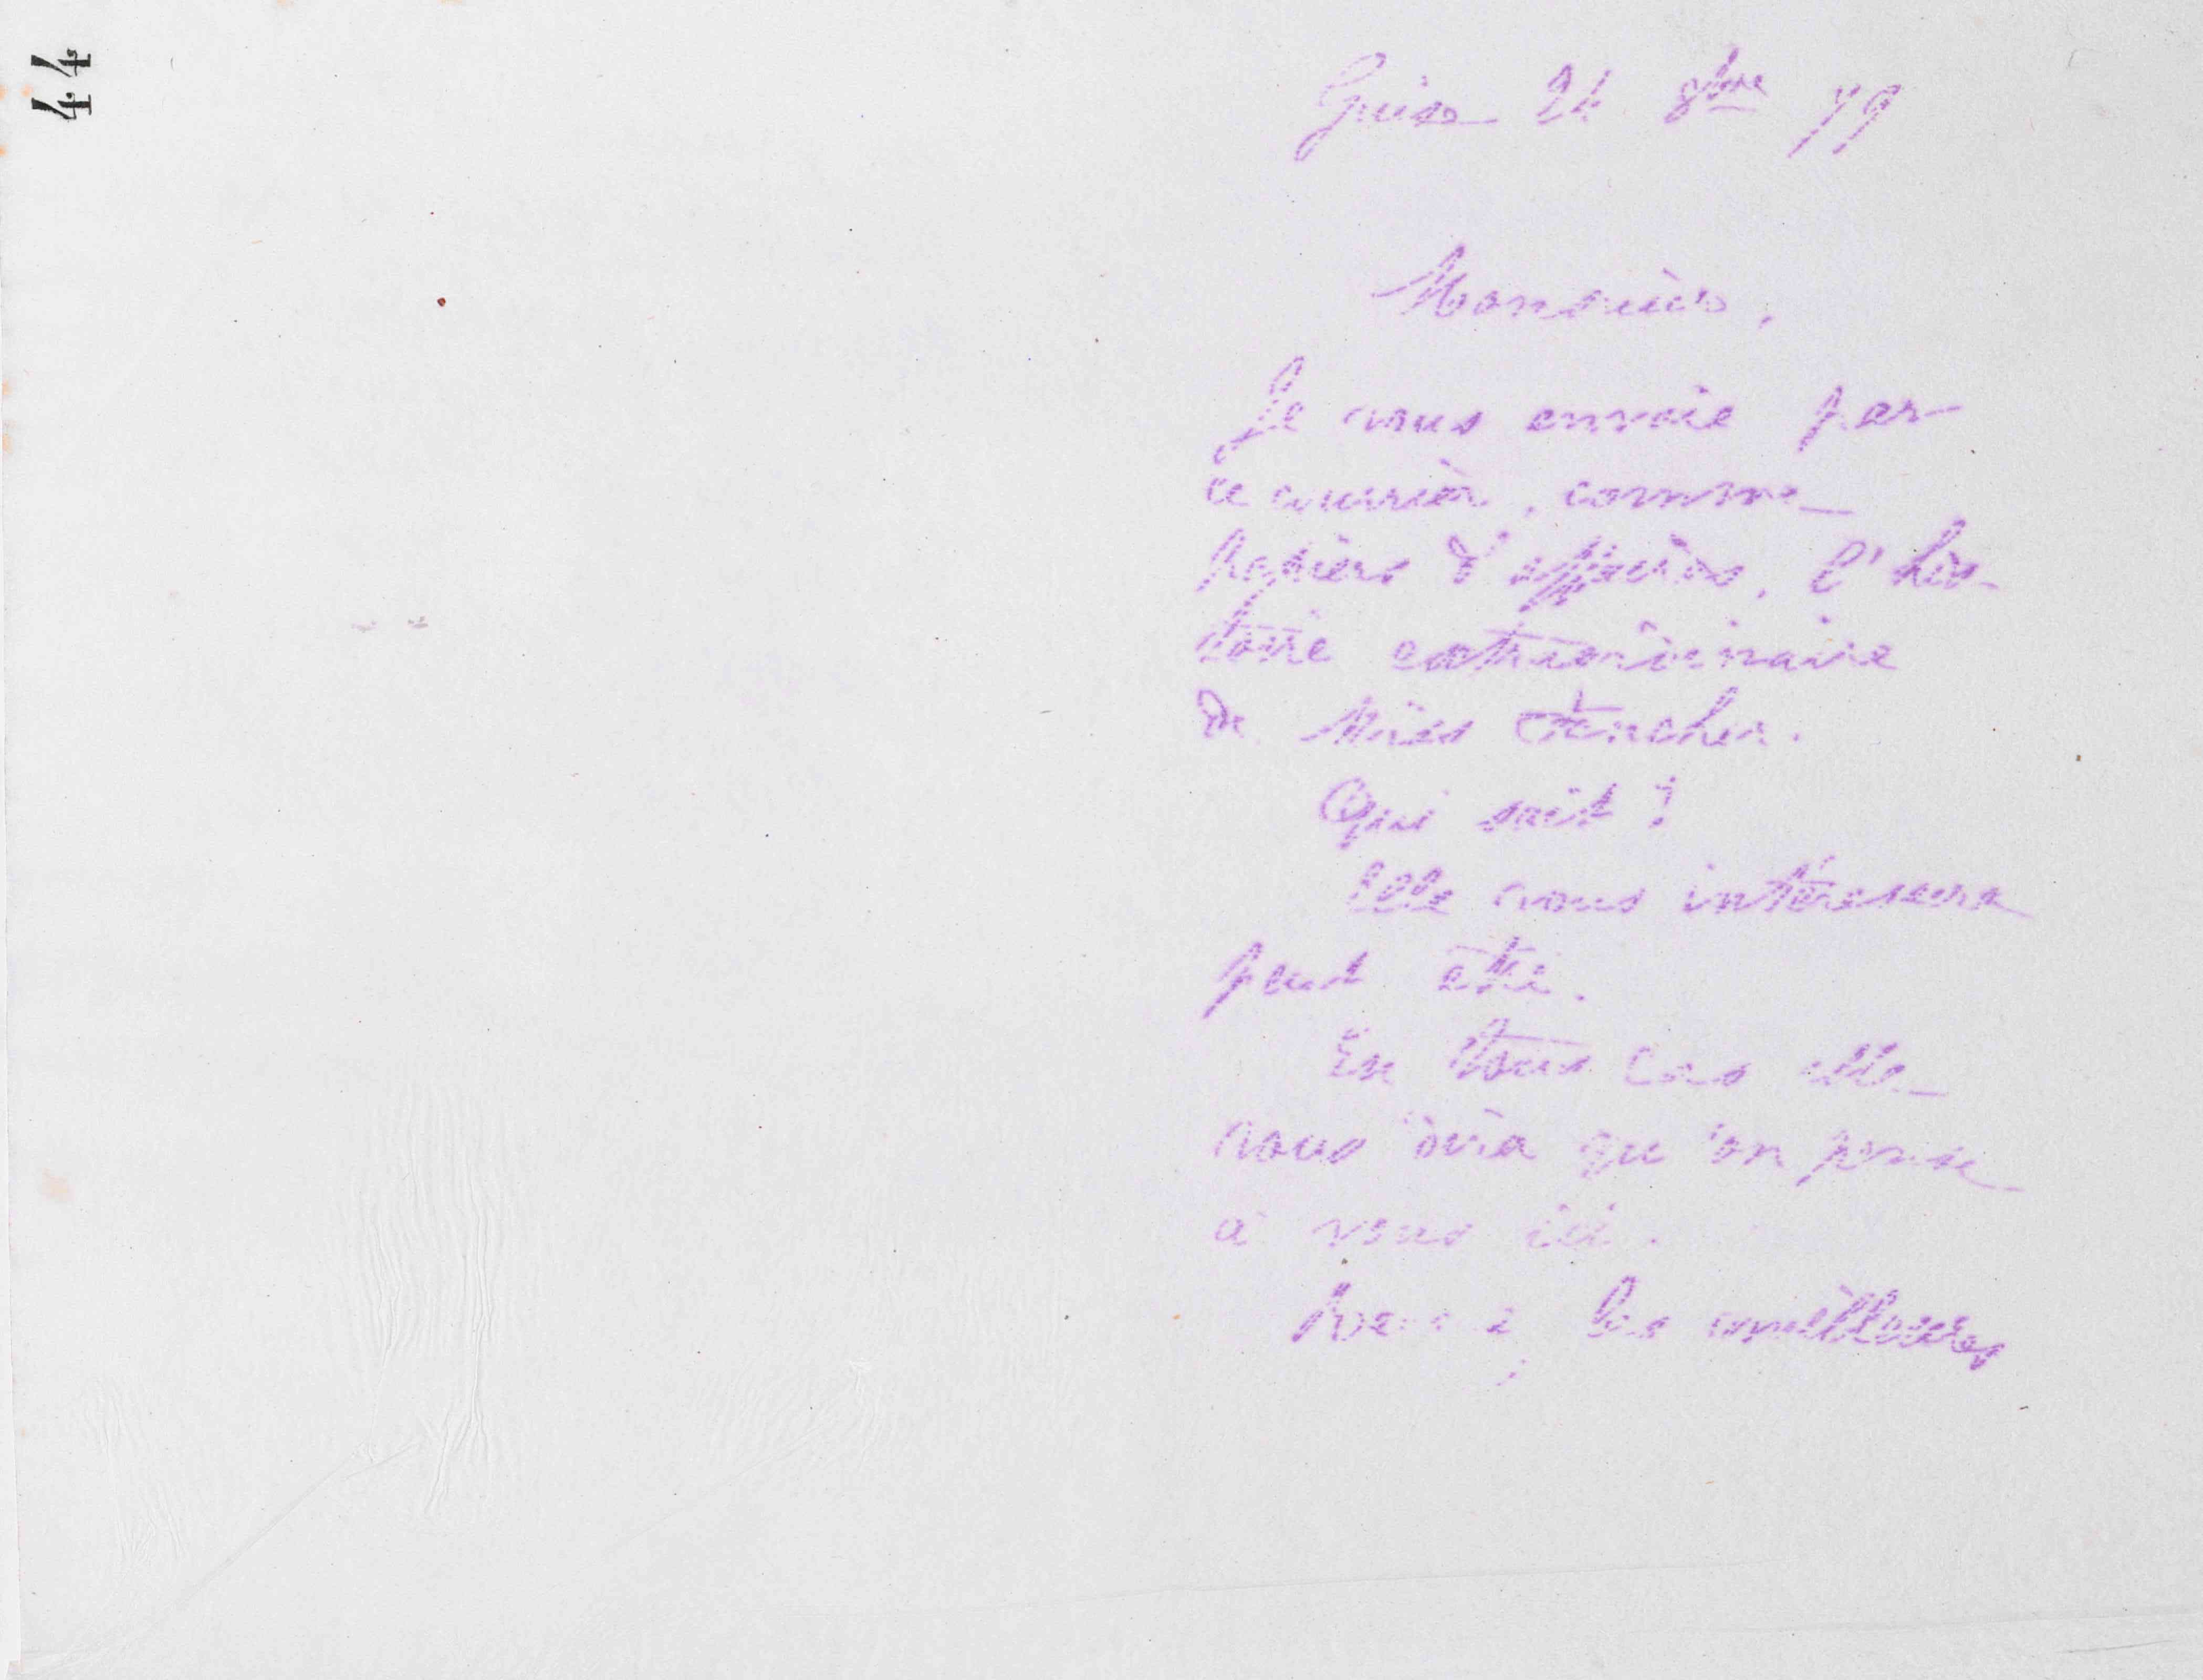 44
Guise 24 8bre 79
Monsieur,
Je vous envoie par
ce courrier, comme
papiers d'affaires, l'his-
toire extraordinaire
de Miss Fancher.
Qui sait?
Elle vous intéressera
peut être.
En tous cas elle
vous dira qu'on pense
à vous ici.
les meilleures